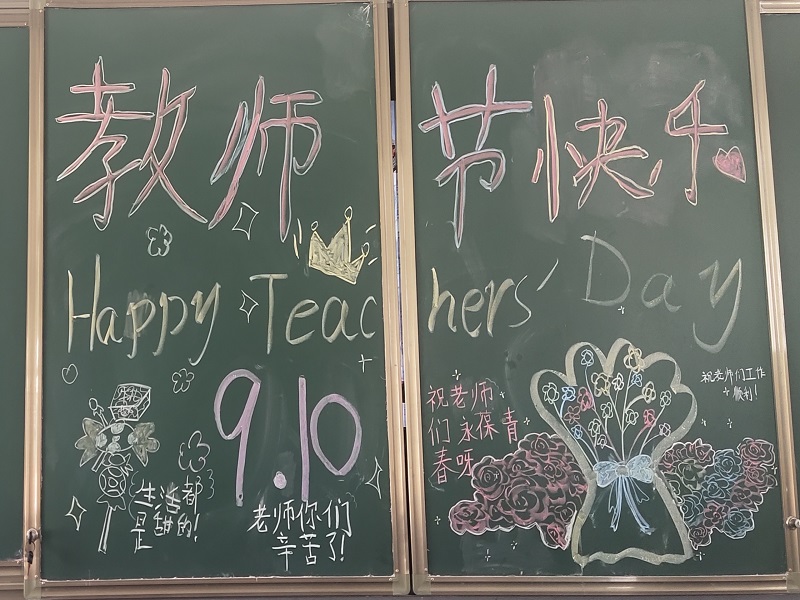 教师节快乐
Happy Teachers' Day
9.10
生活都
是甜的!
老师你们
辛苦了!
祝老师
们永保青
春呀
祝老师们工作
顺利!